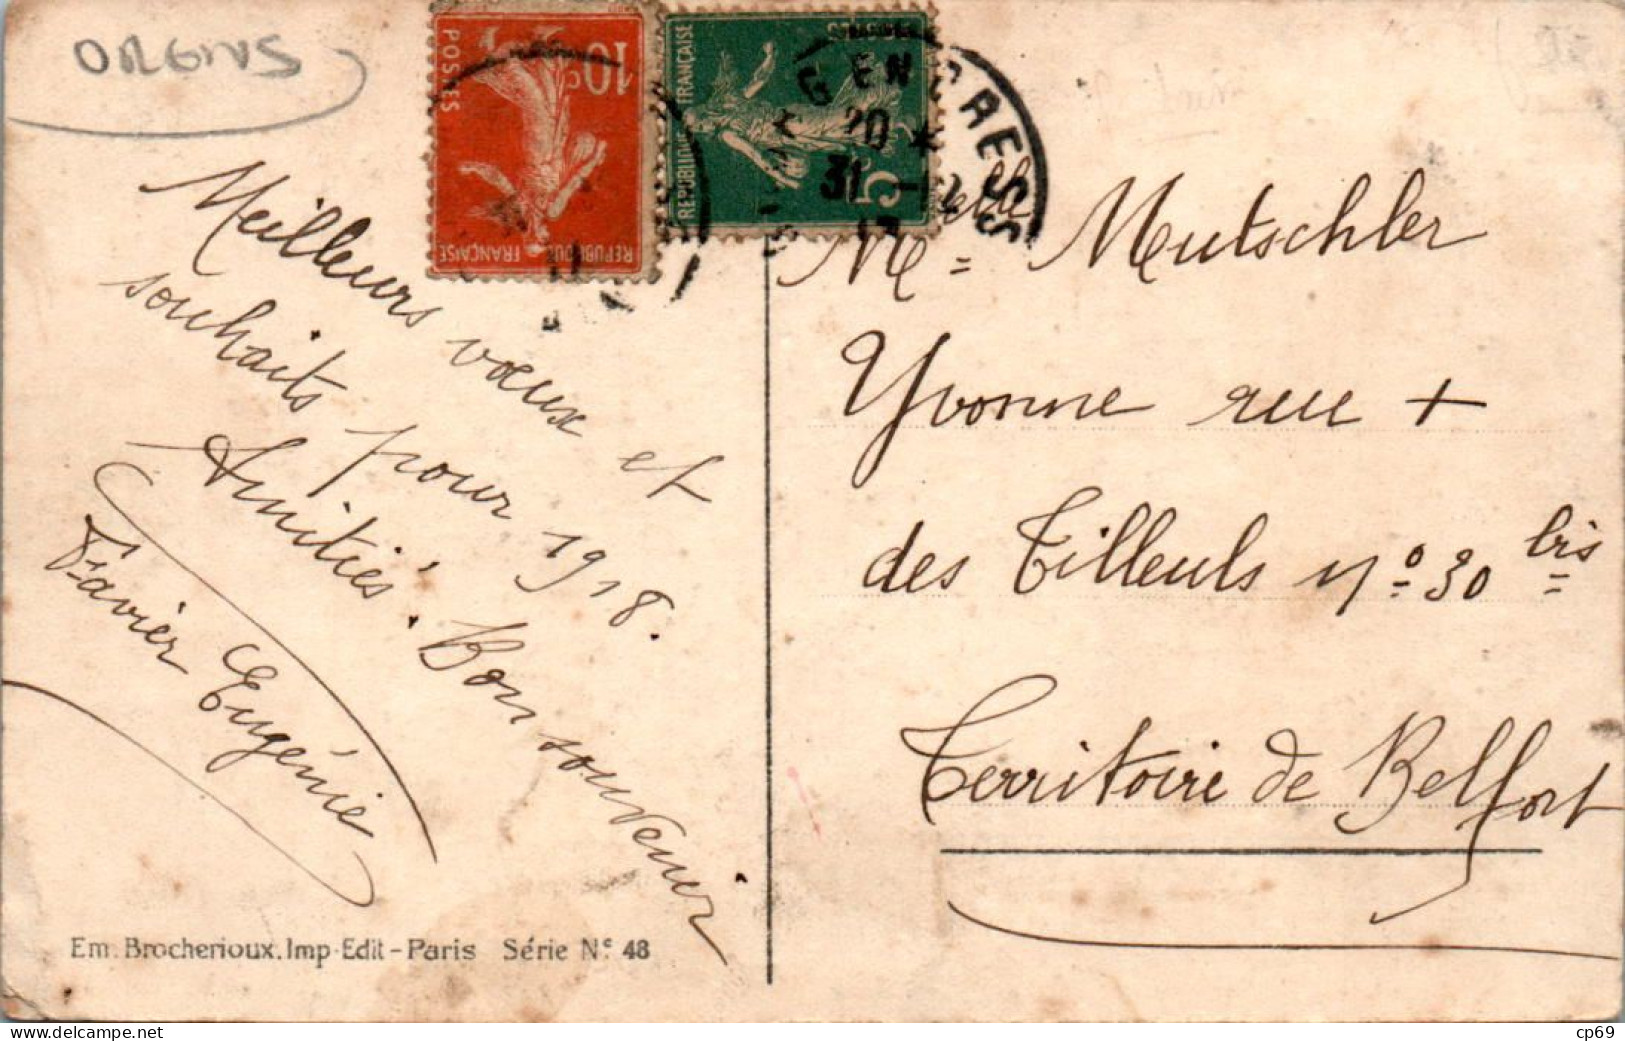 ORGNS
POSTES
10c
REPUBLIQUE FRANÇAISE
REPUBLIQUE FRANÇAISE
5
20
31 - 12
17
Meilleurs vœux et
souhaits pour 1918.
Amitiés. Bon souvenir
Favier Eugénie
Melle Mutschler
Yvonne rue +
des Tilleuls no 30 bis
Territoire de Belfort
Em. Brocherioux. Imp-Edit - Paris Série No 48
www.delcampe.net
cp69